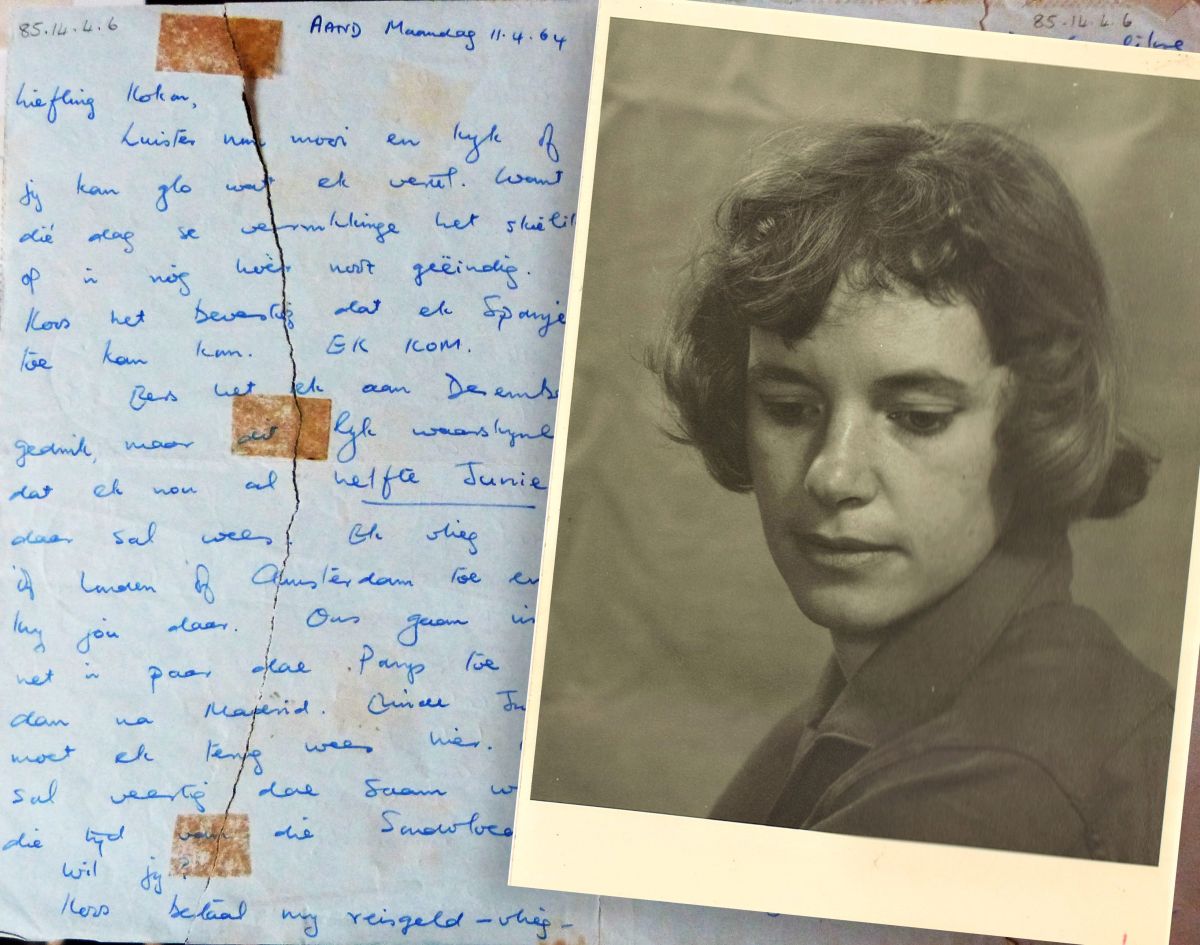 85.14.4.6
AAND Maandag 11.4.64
85.14.4.6
Liefling Kokon,
Luister nou mooi en kyk of
jy kan glo wat ek vertel. Want
dié dag se verrukkinge het skielik
op 'n nóg hoër noot geëindig.
Koos het bevestig dat ek Spanje
toe kan kom. EK KOM.
Eers het ek aan Desembe
gedink, maar dit lyk waarskynl
dat ek nou al helfte Junie
daar sal wees. Ek vlieg
óf Londen óf Amsterdam toe en
kry jóú daar. Ons gaan
net 'n paar dae Parys toe
dan na Madrid. Einde Ju
moet ek terug wees hier.
sal veertig dae saam w
die tyd van die Sondvloed
wil jy?
Koos betaal my reisgeld – vlieg-